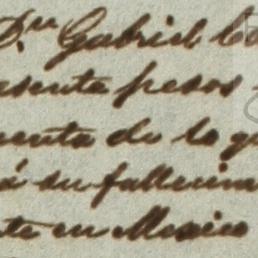 Dn Gabriel Co
esenta pesos
uenta de la q
á su fallecim
te en Mexico